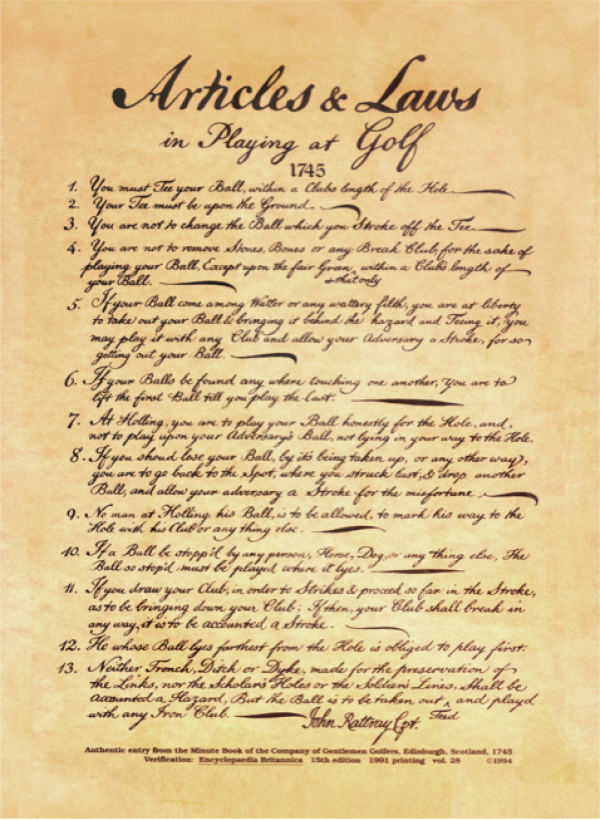 Articles & Laws
in Playing at Golf
1745
1. You must Tee your Ball, within a Clubs length of the Hole
2. Your Tee must be upon the Ground
3. You are not to change the Ball which you Stroke off the Tee
4. You are not to remove Stones, Bones or any Break Club, for the sake of
playing your Ball, Except upon the fair Green, within a Clubs length of
+ that only
your Ball.
5. If your Ball come among Watter or any wattery filth, you are at liberty
to take out your Ball & bringing it behind the hazard and Teeing it, you
may play it with any Club and allow your Adversary a Stroke, for so
getting out your Ball.
6. If your Balls be found any where touching one another, You are to
lift the first Ball till you play the Last.
7. At Holling, you are to play your Ball honestly for the Hole, and,
not to play upon your Adversary's Ball, not lying in your way to the Hole.
8. If you should lose your Ball, by it's being taken up, or any other way,
you are to go back to the Spot, where you struck last, & drop another
Ball, and allow your adversary a Stroke for the misfortune
9. No man at Holling his Ball, is to be allowed, to mark his way to the
Hole with his Club or any thing else.
10. If a Ball be stopp'd by any person, Horse, Dog, or any thing else, The
Ball so stop'd must be played where it lyes.
11. If you draw your Club, in order to Strike & proceed so far in the Stroke,
as to be bringing down your Club; If then, your Club shall break in
any way, it is to be accounted a Stroke.
12. He whose Ball lyes farthest from the Hole is obliged to play first.
13. Neither Trench, Ditch or Dyke, made for the preservation of
the Links, nor the Scholar's Holes or the Soldier's Lines, Shall be
accounted a Hazard, But the Ball is to be taken out ^ and play'd
with any Iron Club. John Rattray Cpt. Teed
Authentic entry from the Minute Book of the Company of Gentlemen Golfers, Edinburgh, Scotland, 1745
Verification: Encyclopaedia Britannica 15th edition 1991 printing vol. 28 ©1994